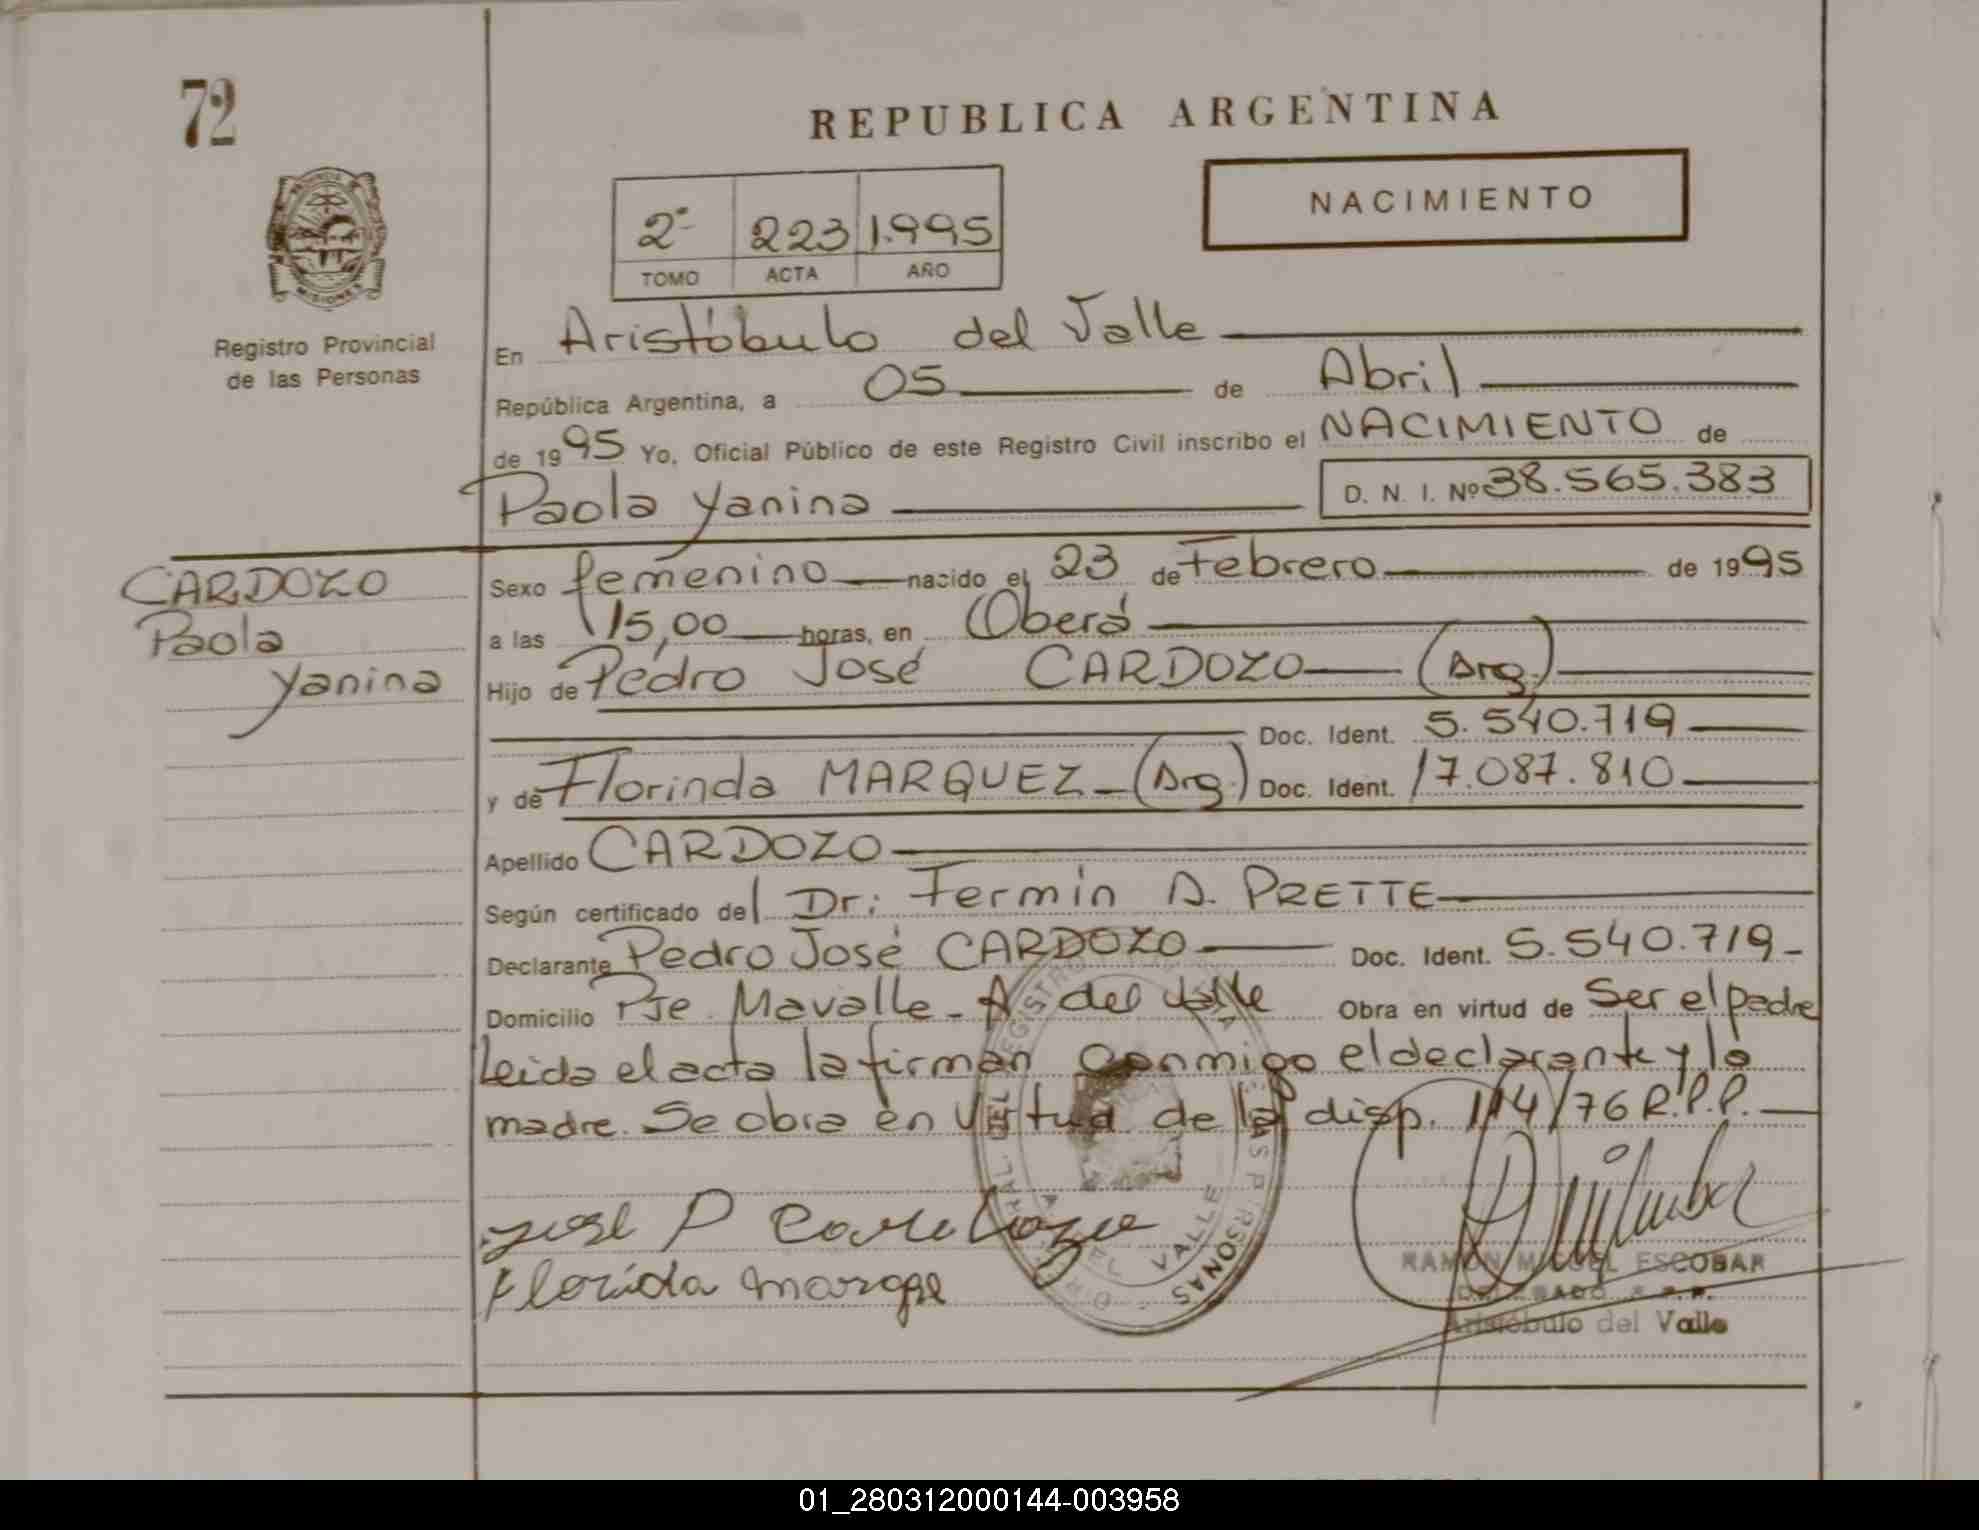 72
REPUBLICA ARGENTINA
NACIMIENTO
2º 223 1.995
TOMO ACTA AÑO
PROVINCIA DE MISIONES
Registro Provincial
de las Personas
En Aristóbulo del Valle
República Argentina, a 05 de Abril
de 1995 Yo, Oficial Público de este Registro Civil inscribo el NACIMIENTO de
Paola Yanina D. N. I. Nº 38.565.383
CARDOZO
Paola
Yanina
Sexo femenino nacido el 23 de Febrero de 1995
a las 15,00 horas, en Oberá
Hijo de Pedro José CARDOZO (Arg.)
Doc. Ident. 5.540.719
y de Florinda MARQUEZ (Arg.) Doc. Ident. 17.087.810
Apellido CARDOZO
Según certificado del Dr: Fermín A. PRETTE
Declarante Pedro José CARDOZO Doc. Ident. 5.540.719
Domicilio Pje Mavalle - A del Valle Obra en virtud de Ser el padre
Leida el acta la firman conmigo el declarante y la
madre. Se obra en virtud de la disp. 114/76 R.P.P.
José P
Florida
VALLE
RAMON MIGUEL ESCOBAR
DELEGADO R.P.P.
Aristóbulo del Valle
01_280312000144-003958